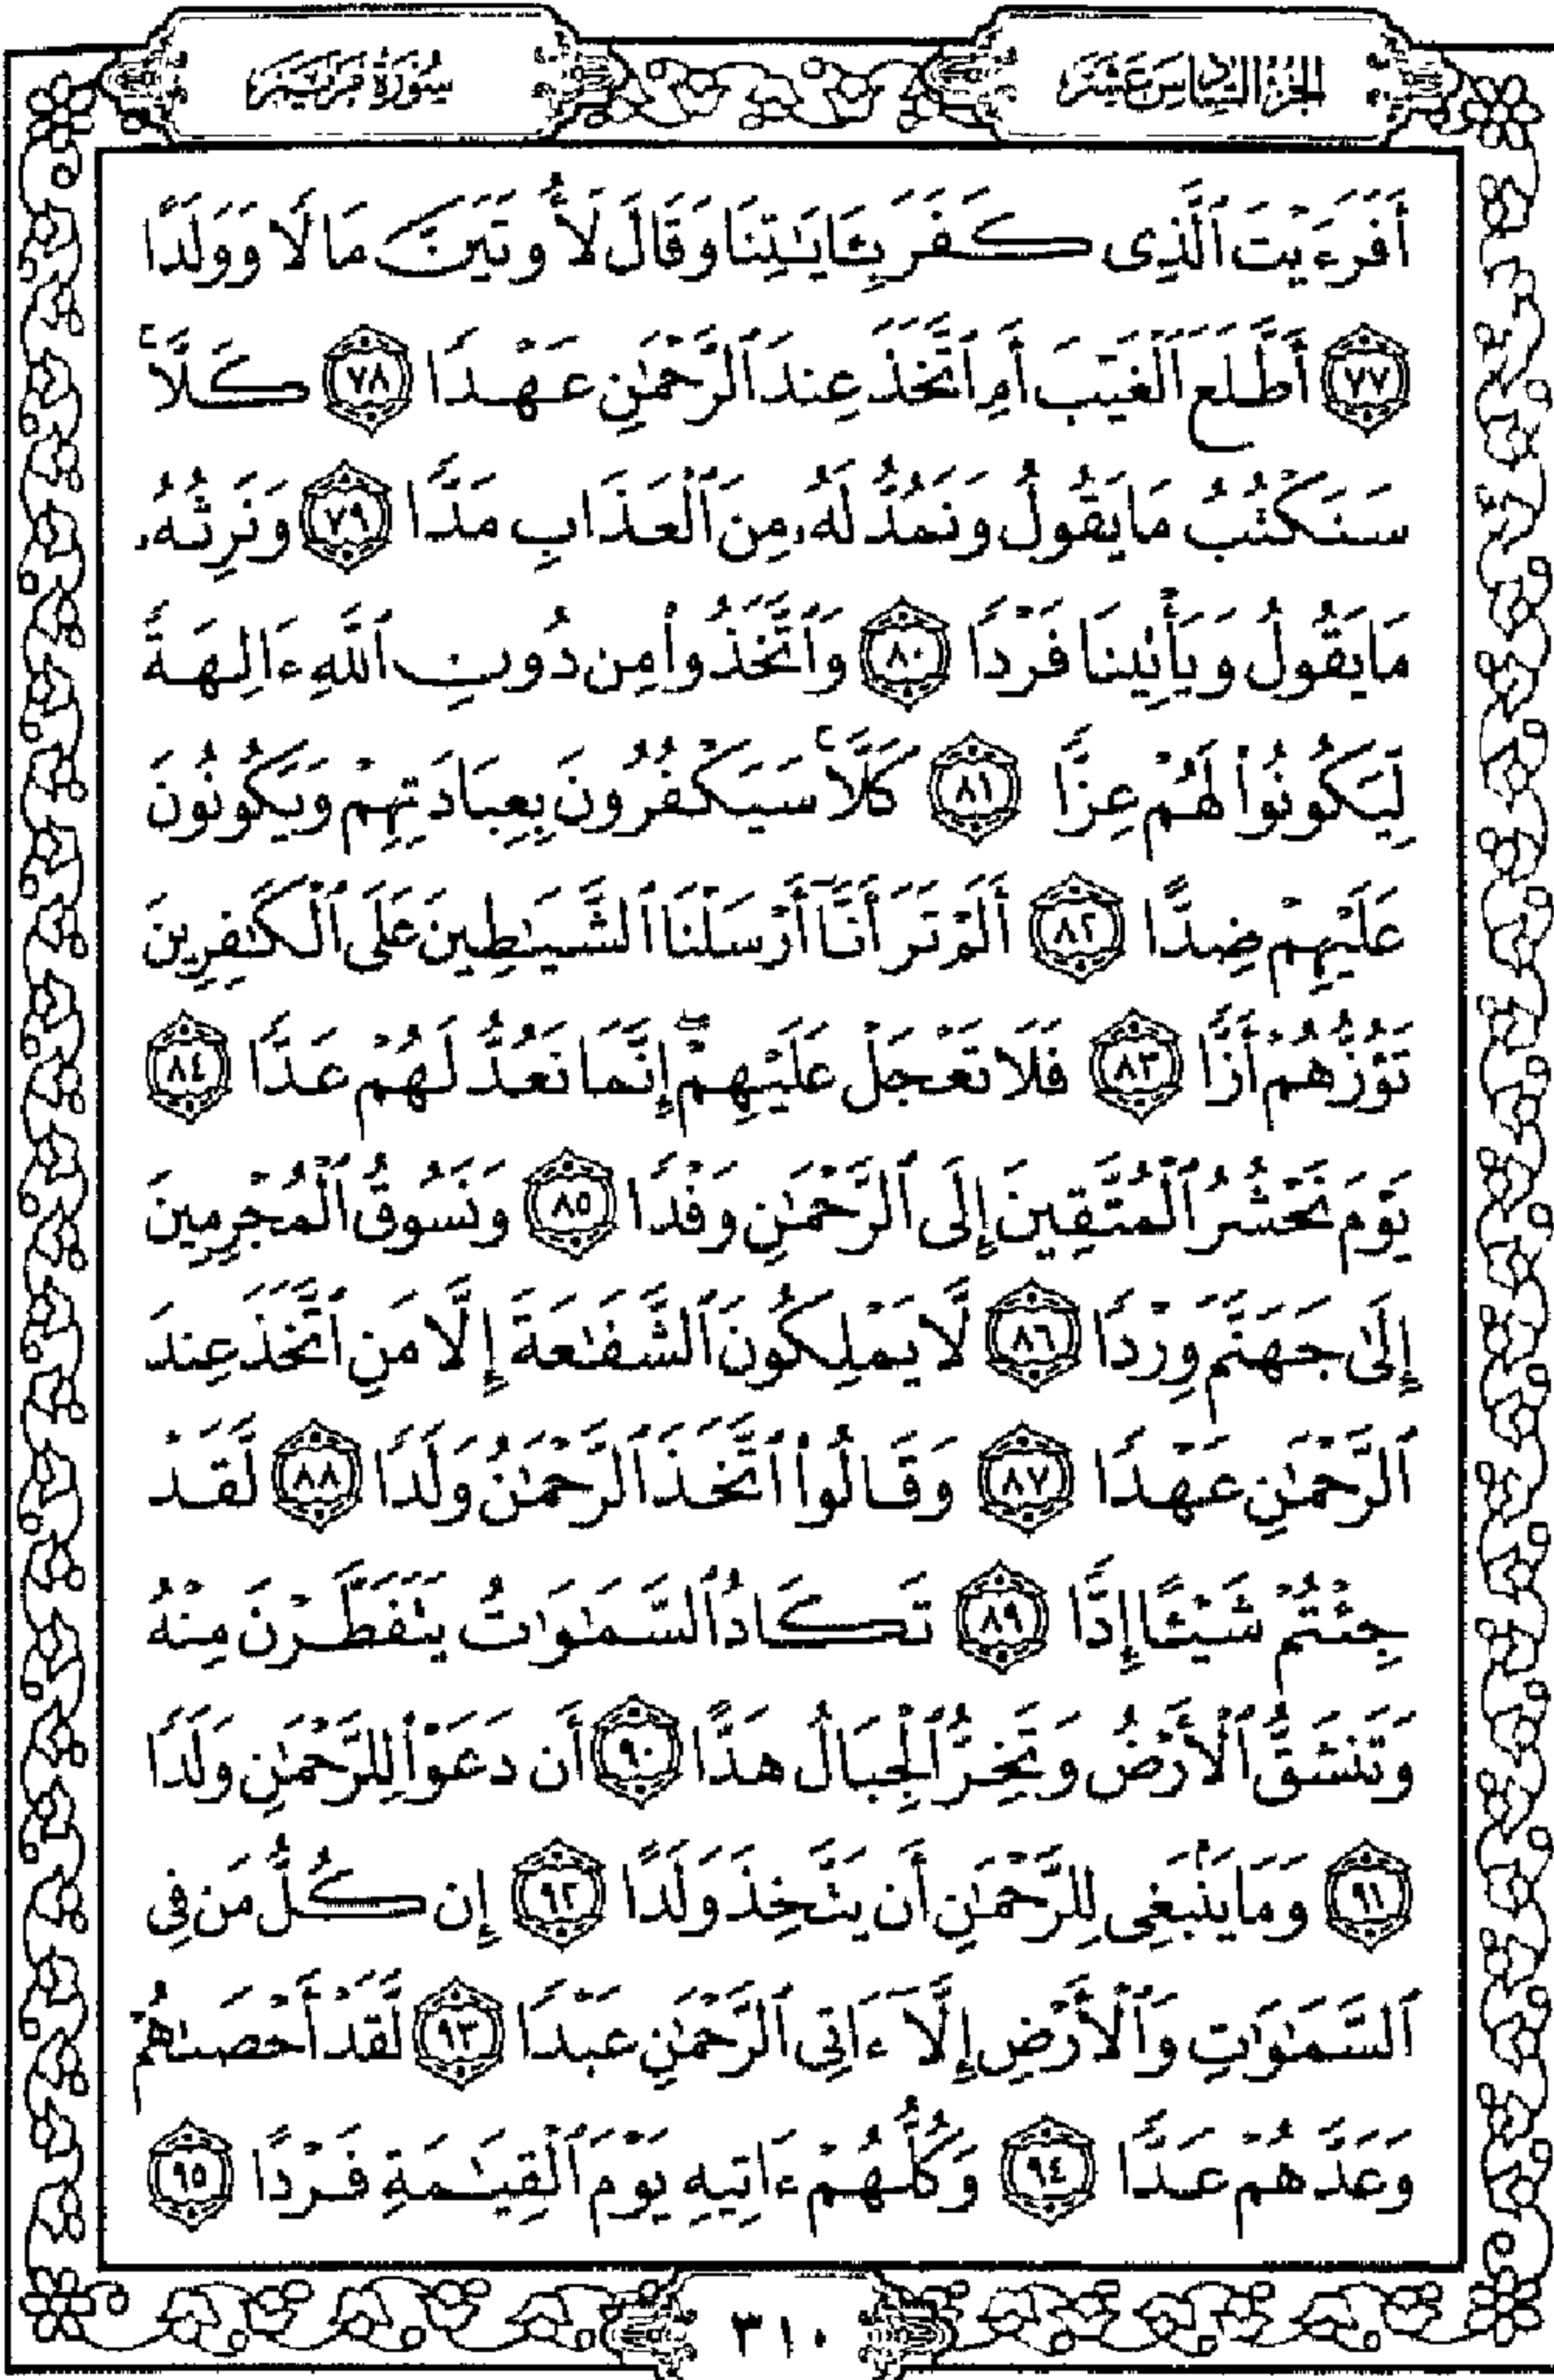 الجزء السادس عشر
سورة مريم
أَفَرَءَيْتَ ٱلَّذِى كَفَرَ بِـَٔايَـٰتِنَا وَقَالَ لَأُوتَيَنَّ مَالًا وَوَلَدًا
﴿٧٧﴾ أَطَّلَعَ ٱلْغَيْبَ أَمِ ٱتَّخَذَ عِندَ ٱلرَّحْمَـٰنِ عَهْدًا ﴿٧٨﴾ كَلَّا ۚ
سَنَكْتُبُ مَا يَقُولُ وَنَمُدُّ لَهُۥ مِنَ ٱلْعَذَابِ مَدًّا ﴿٧٩﴾ وَنَرِثُهُۥ
مَا يَقُولُ وَيَأْتِينَا فَرْدًا ﴿٨٠﴾ وَٱتَّخَذُوا۟ مِن دُونِ ٱللَّهِ ءَالِهَةً
لِّيَكُونُوا۟ لَهُمْ عِزًّا ﴿٨١﴾ كَلَّا ۚ سَيَكْفُرُونَ بِعِبَادَتِهِمْ وَيَكُونُونَ
عَلَيْهِمْ ضِدًّا ﴿٨٢﴾ أَلَمْ تَرَ أَنَّآ أَرْسَلْنَا ٱلشَّيَـٰطِينَ عَلَى ٱلْكَـٰفِرِينَ
تَؤُزُّهُمْ أَزًّا ﴿٨٣﴾ فَلَا تَعْجَلْ عَلَيْهِمْ ۖ إِنَّمَا نَعُدُّ لَهُمْ عَدًّا ﴿٨٤﴾
يَوْمَ نَحْشُرُ ٱلْمُتَّقِينَ إِلَى ٱلرَّحْمَـٰنِ وَفْدًا ﴿٨٥﴾ وَنَسُوقُ ٱلْمُجْرِمِينَ
إِلَىٰ جَهَنَّمَ وِرْدًا ﴿٨٦﴾ لَّا يَمْلِكُونَ ٱلشَّفَـٰعَةَ إِلَّا مَنِ ٱتَّخَذَ عِندَ
ٱلرَّحْمَـٰنِ عَهْدًا ﴿٨٧﴾ وَقَالُوا۟ ٱتَّخَذَ ٱلرَّحْمَـٰنُ وَلَدًا ﴿٨٨﴾ لَّقَدْ
جِئْتُمْ شَيْـًٔا إِدًّا ﴿٨٩﴾ تَكَادُ ٱلسَّمَـٰوَٰتُ يَتَفَطَّرْنَ مِنْهُ
وَتَنشَقُّ ٱلْأَرْضُ وَتَخِرُّ ٱلْجِبَالُ هَدًّا ﴿٩٠﴾ أَن دَعَوْا۟ لِلرَّحْمَـٰنِ وَلَدًا
﴿٩١﴾ وَمَا يَنۢبَغِى لِلرَّحْمَـٰنِ أَن يَتَّخِذَ وَلَدًا ﴿٩٢﴾ إِن كُلُّ مَن فِى
ٱلسَّمَـٰوَٰتِ وَٱلْأَرْضِ إِلَّآ ءَاتِى ٱلرَّحْمَـٰنِ عَبْدًا ﴿٩٣﴾ لَّقَدْ أَحْصَىٰهُمْ
وَعَدَّهُمْ عَدًّا ﴿٩٤﴾ وَكُلُّهُمْ ءَاتِيهِ يَوْمَ ٱلْقِيَـٰمَةِ فَرْدًا ﴿٩٥﴾
٣١٠